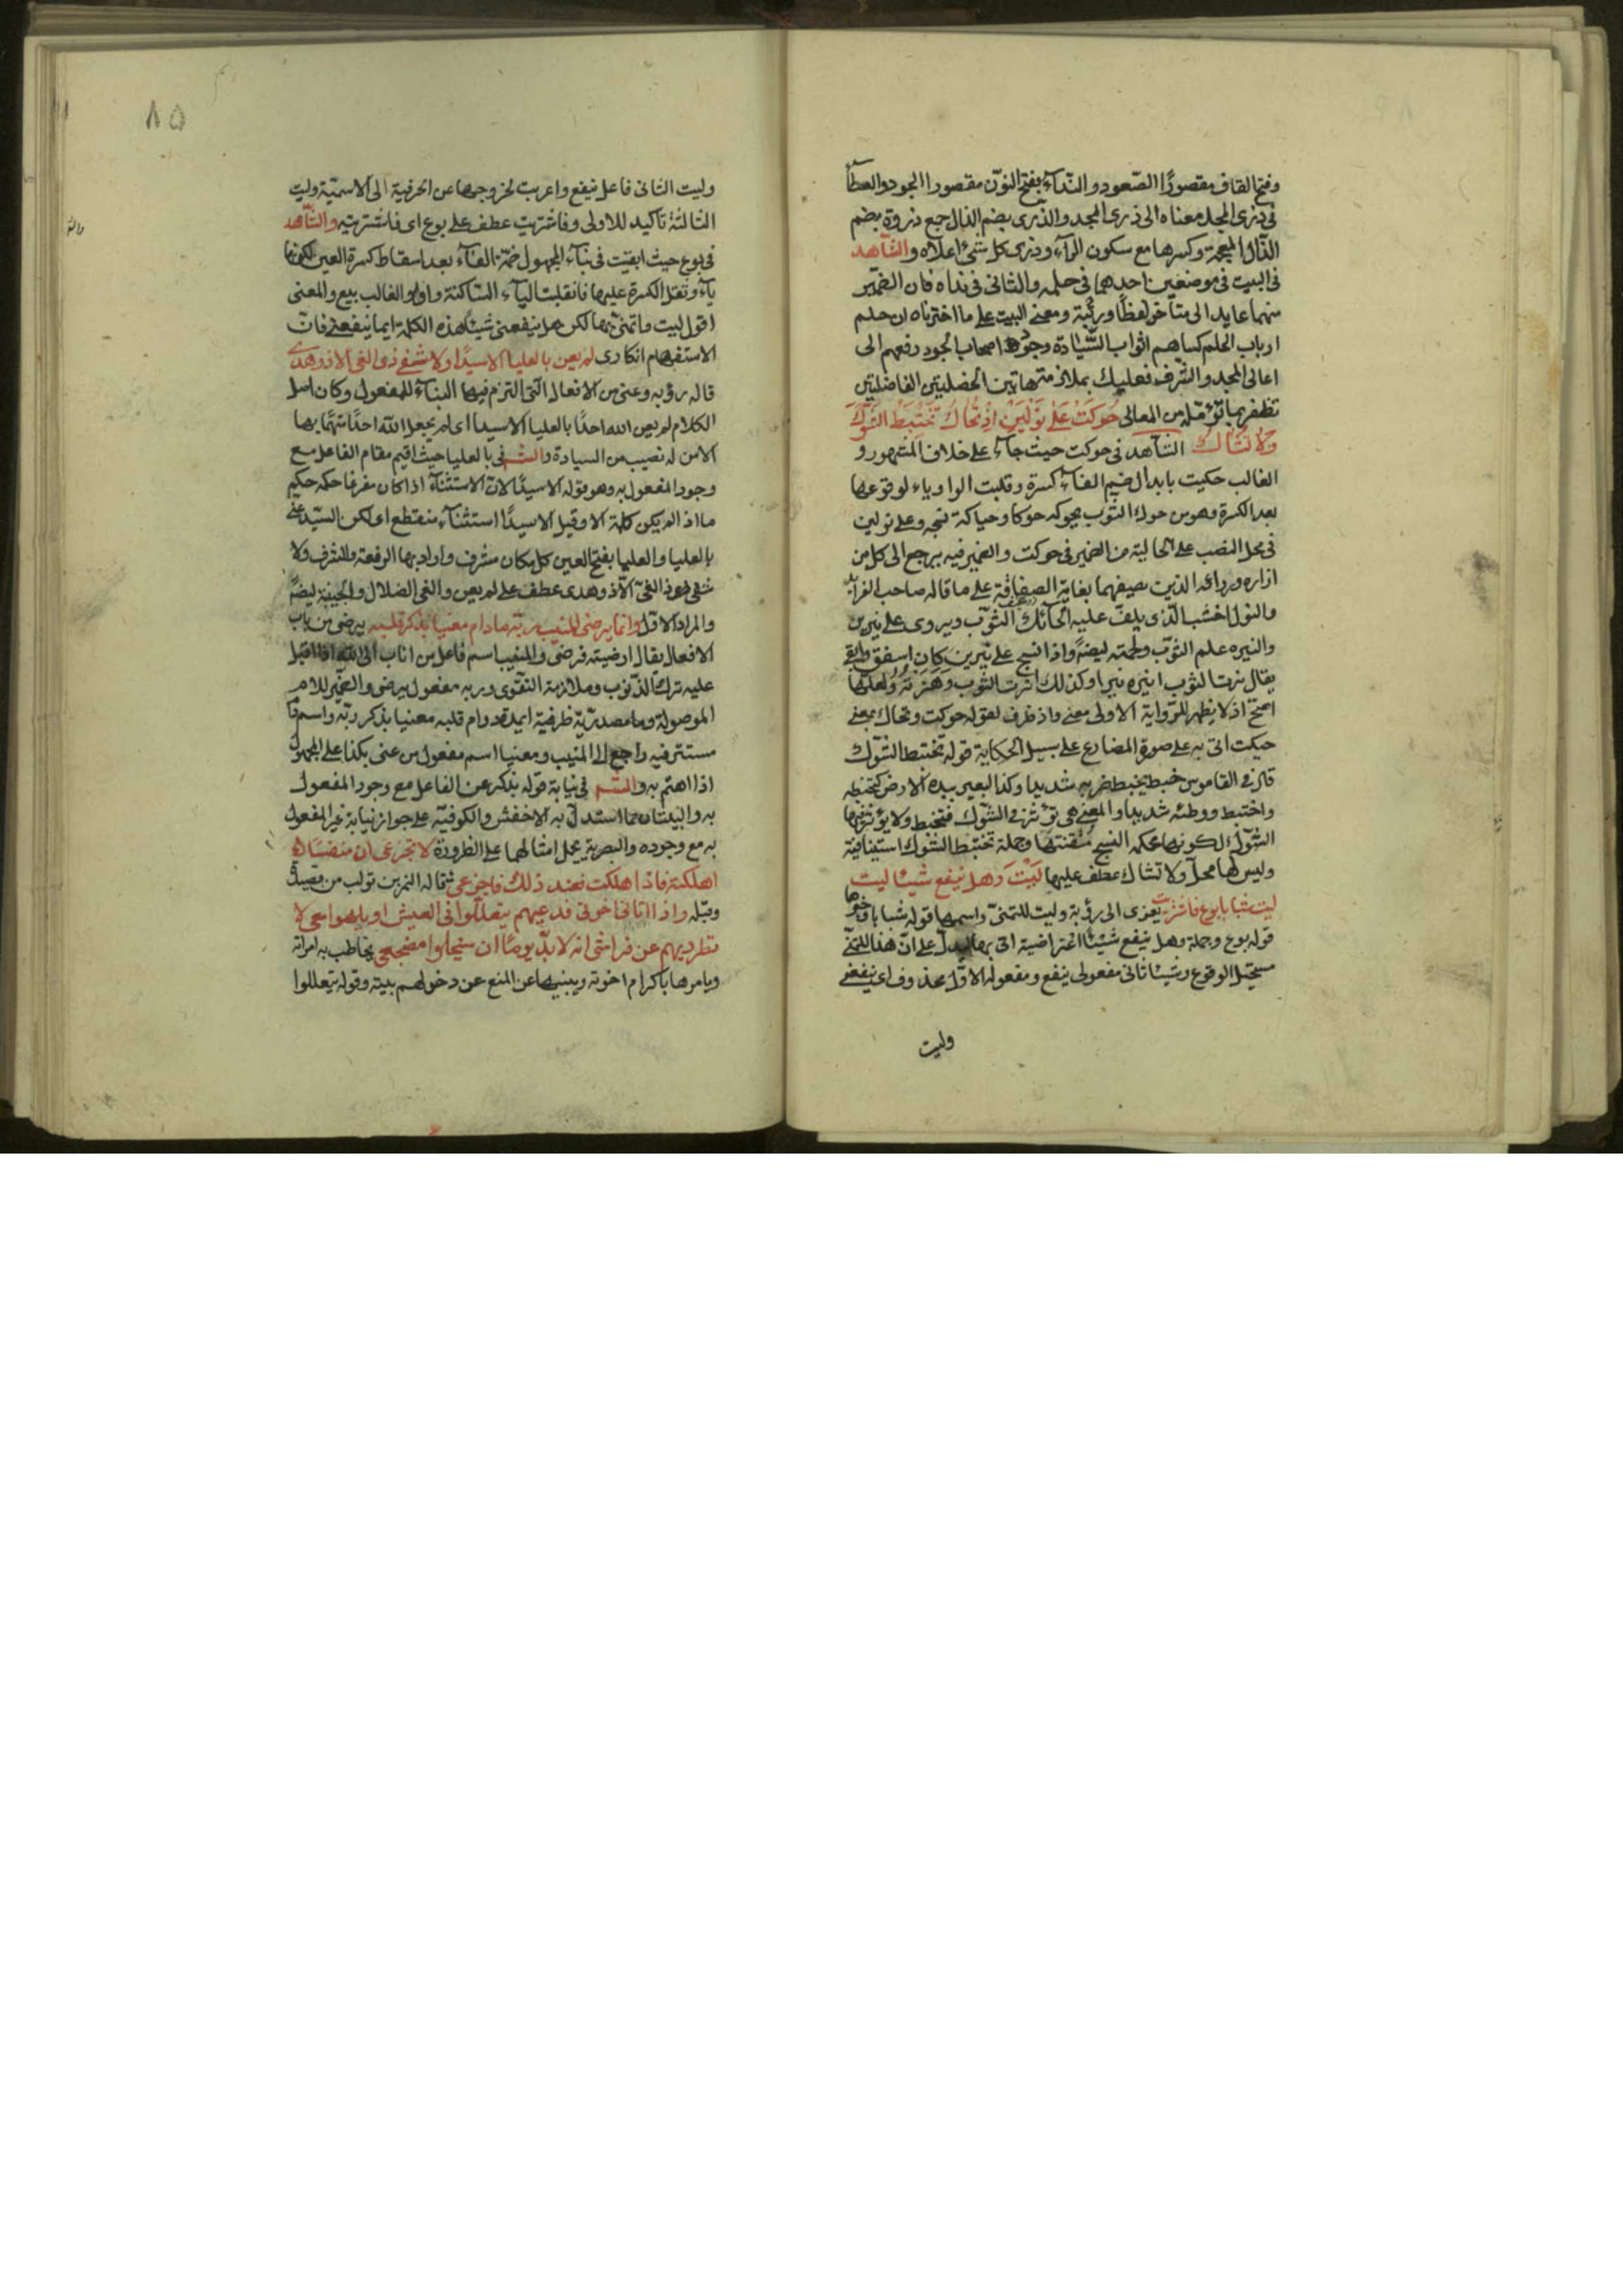 وفتح القاف مقصورًا الصعود والنداء بفتح النون مقصورا الجود والعطاء
فى ذرى المجد معناه الى ذرى المجد والذرى بضم الذال جمع ذروة بضم
الذال المعجمة وكسرها مع سكون الراء وذرى كل شئ اعلاه والشاهد
فى البيت فى موضعين احدهما فى حلمه والثانى فى نداه فان الضمير
منهما عايد الى متأخر لفظا ورتبة ومعنى البيت على ما اخترناه ان حلم
ارباب الحلم كساهم اثواب السيادة وجود اصحاب الجود رفعهم الى
اعالى المجد والشرف فعليك بملازمة هاتين الخصليتين الفاضليتين
تظفر بما تؤمله من المعالى حوكت على نولين اذ تحاك تختبط الشوك
ولا تشاك الشاهد فى حوكت حيث جاء على خلاف المشهور و
الغالب حكيت بابدال ضم الفاء كسرة وقلبت الواو ياء لوقوعها
بعد الكسرة وهو من حوك الثوب يحوكه حوكا وحياكة نسجه وعلى نولين
فى محل النصب على الحالية من الضمير فى حوكت والضمير فيه يرجع الى كل من
ازاره وردائه الذين يصيفهما بغاية الصفاقة على ما قاله صاحب الفرايد
والنول اخشب الذى يلف عليه الحائك الثوب ويروى على نيرين
والنيره علم الثوب ولحمته ايضا واذا نسج على نيرين كان اصفق وابقى
يقال نرت الثوب انيره نيرا وكذلك انرت الثوب وهنرته ولعلها
اصح اذ لا يظهر للرواية الاولى معنى واذ ظرف لقوله حوكت وتحاك بمعنى
حيكت اتى به على صورة المضارع على سبيل الحكاية قوله تختبط الشوك
قال فى القاموس خبطه يخبطه ضربه شديدا وكذا البعير بيده الارض كتخبطه
واختبط ووطئه شديدا والمعنى هى تؤثر فى الشوك فتخبط ولا يؤثر فيها
الشوك لكونها محكمة النسج متقنتها وجملة تختبط الشوك استينافية
وليس لها محل ولا تشاك عطف عليها ليت وهل ينفع شيئا ليت
ليت شبابا بوع فاشتريت يعزى الى رؤبة وليت للتمنى واسمها قوله شبابا وخبرها
قوله بوع وجملة وهل ينفع شيئا اعتراضية اتى بها ليدل على ان هذا التمنى
مستحيل الوقوع وشيئا ثانى مفعولى ينفع ومفعوله الاول محذوف اى ينفعنى
وليت
٨٥
وليت الثانى فاعل ينفع واعربت لخروجها عن الحرفية الى الاسمية وليت
الثالثة تاكيد للاولى وفاشتريت عطف على بوع اى فاشتريته والشاهد
فى بوع حيث ابقيت فى بناء المجهول ضمة الفاء بعد اسقاط كسرة العين لكونها
ياء وثقل الكسرة عليها فانقلبت الياء الساكنة واوا والغالب بيع والمعنى
اقول ليت واتمنى بها لكن هل ينفعنى شيئا هذه الكلمة اى ما ينفعنى فان
الاستفهام انكارى لم يعن بالعليا الا سيدا ولا شفى ذى الغى الا ذو هدى
قاله رؤبه وعنى من الافعال التى التزم فيها البناء للمفعول وكان اصل
الكلام لم يعن الله احدًا بالعليا الا سيدا اى لم يجعل الله احدًا مهتمًا بها
الا من له نصيب من السيادة والشـ فى بالعليا حيث اقيم مقام الفاعل مع
وجود المفعول به وهو قوله الا سيدًا لان الاستثناء اذا كان مفرغا حكمه حكم
ما اذا لم يكن كلمة الا وقيل الا سيدًا استثناء منقطع اى لكن السيد عنى
بالعليا والعليا بفتح العين كل مكان مشرف واراد بها الرفعة والشرف ولا
شفى ذى الغى الا ذو هدى عطف على لم يعن والغى الضلال والخيبة ايضا
والمراد الاول وانما يرضى المنيب ربه ما دام معنيا بذكر قلبه يرضى من باب
الافعال يقال ارضيته فرضى والمنيب اسم فاعل من اناب الى الله اذا اقبل
عليه بترك الذنوب وملازمة التقوى وربه مفعول يرضى والضمير للام
الموصولة وما مصدرية ظرفية اى مدة دوام قلبه معنيا بذكر ربه واسم دام
مستتر فيه راجع الى المنيب ومعنيا اسم مفعول من عنى بكذا على المجهول
اذا اهتم به والشـ فى نيابة قوله بذكر عن الفاعل مع وجود المفعول
به والبيتان مما استدل به الاخفش والكوفية على جواز نيابة غير المفعول
به مع وجوده والبصرية يحمل امثالها على الظرورة لا تجزعى ان منفسا
اهلكته فاذا هلكت فعند ذلك فاجزعى قاله النمر بن تولب من قصيدة
وقبله واذا اتانى اخوتى فدعيهم يتعللوا فى العيش او يلهوا معى لا
تطرديهم عن فراشى انه لا بد يومًا ان سيخلوا مضجعى يخاطب به امراته
ويامرها باكرام اخوته وينهيها عن المنع عن دخولهم بيته وقوله يتعللوا